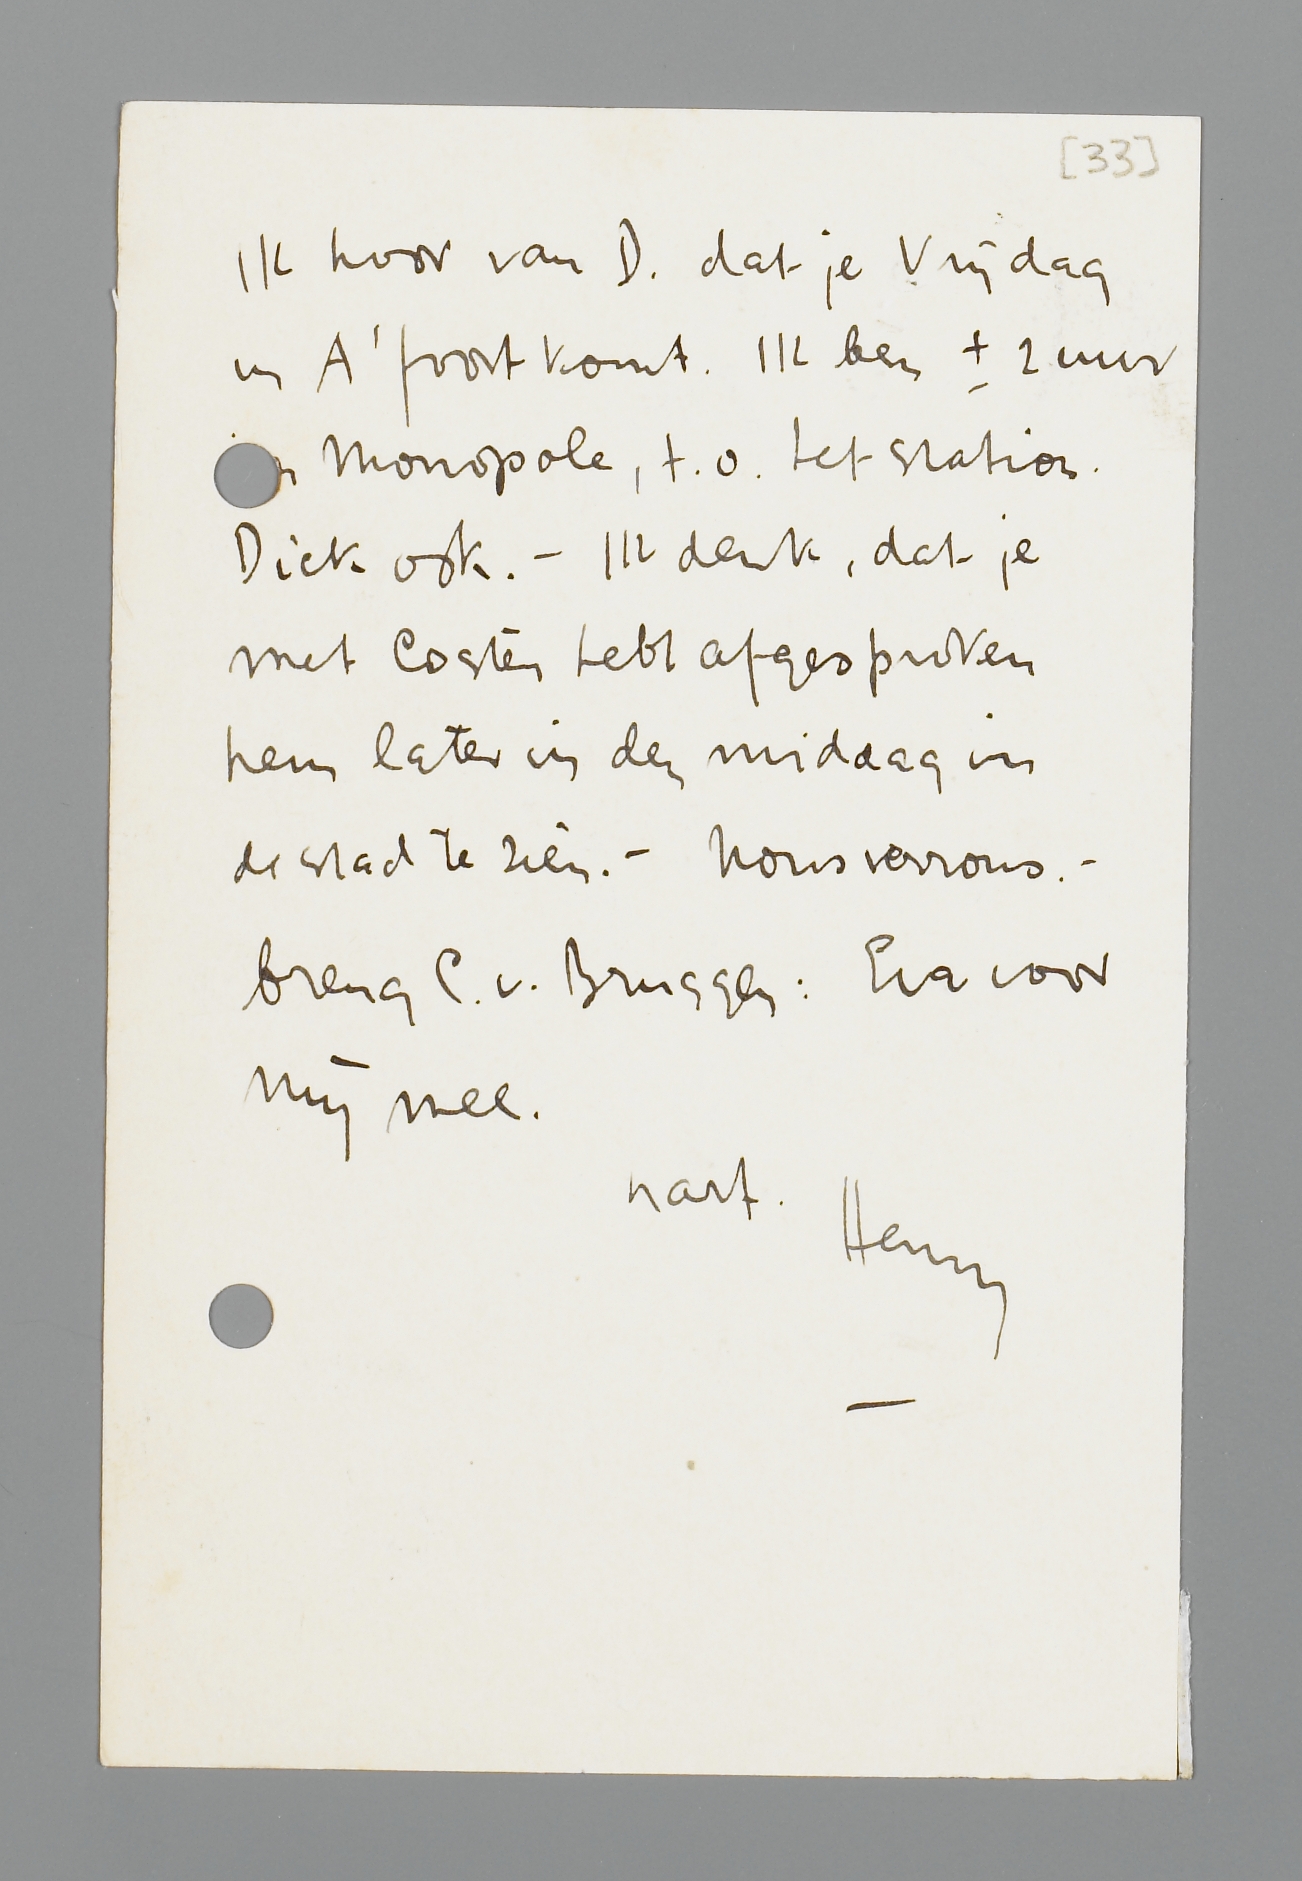 [33]
Ik hoor van D. dat je Vrijdag
in A'foort komt. Ik ben ± 2 uur
in Monopole, t.o. het station.
Dick ook. – Ik denk, dat je
met Coster hebt afgesproken
hem later in den middag in
de stad te zien. – Nous verrons. –
breng C. v. Bruggen: Eva voor
mij mee.
hart. Henny